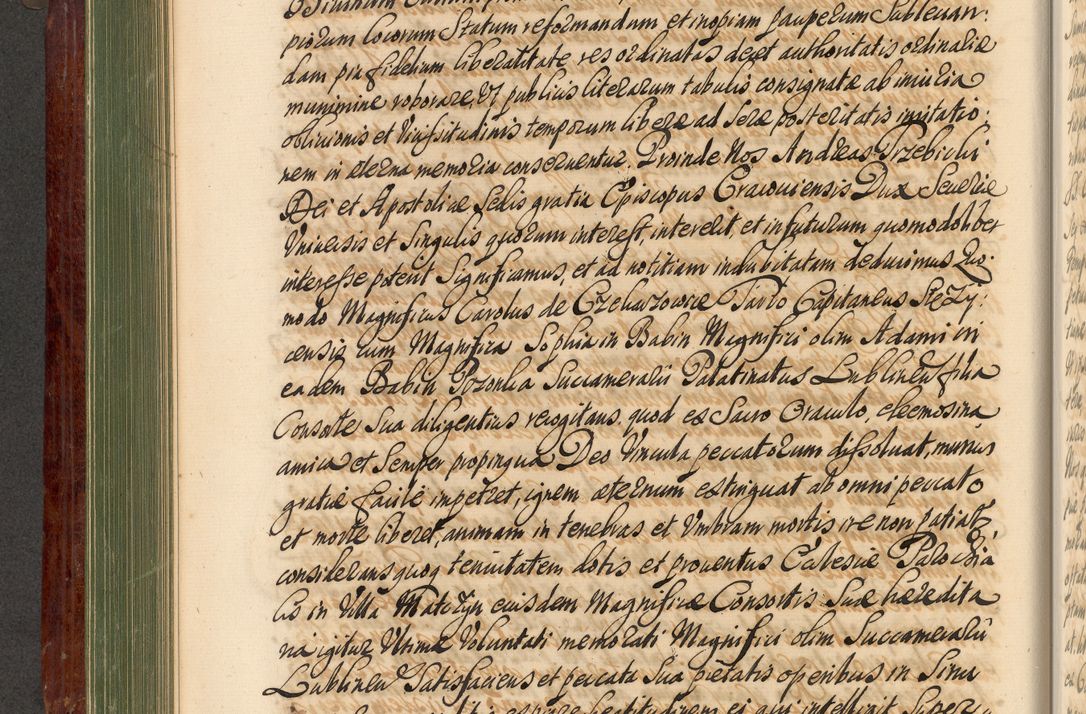 piorum locorum Statum reformandum et inopiam pauperum Sublevan:
dam pia fidelium liberalitate res ordinatas decet authoritatis ordinariæ
munimine roborare, et publicis literarum tabulis consignata ab iniuria
oblivionis et Vicissitudinis temporum libere ad Seræ posteritatis imitatio:
nem in æterna memoria conserventur. Proinde Nos Andreas Trzebicki
Dei et Apostolicæ Sedis gratia Episcopus Cracoviensis Dux Severiæ
Universis et Singulis quorum interest, intererit, et in futurum quomodolibet
interesse poterit Significamus, et ad notitiam indubitatam deducimus Quo:
modo Magnificus Carolus de Czekarzowice Tarło Capitaneus Stęży:
censis cum Magnifica Sophia in Babin Magnifici olim Adami in
eadem Babin Pszonka Succamerarii Palatinatus Lublinen filia
Consorte Sua diligentius recogitans, quod ex Sacro Oraculo, eleemosina
amica et Semper propinqua Deo Vincula peccatorum dissoluat, munus
gratiæ facile impetret, ignem æternum extinguat ab omni peccato
et morte liberet, animam in tenebras et Umbram mortis ire non patiat
considerans quoq tenuitatem dotis et proventus Ecclesiæ Parochia
lis in Villa Matczyn eiusdem Magnificæ Consortis Suæ hæredita
ria igitur Ultimæ Voluntati memorati Magnifici olim Succamerarii
Lublinen Satisfaciens et peccata Sua pietatis operibus in Sinu